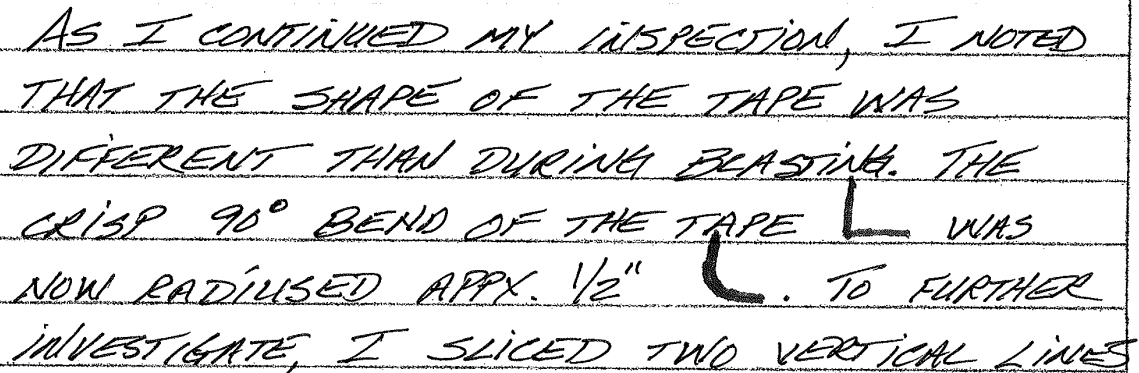 AS I CONTINUED MY INSPECTION, I NOTED
THAT THE SHAPE OF THE TAPE WAS
DIFFERENT THAN DURING BLASTING. THE
CRISP 90° BEND OF THE TAPE WAS
NOW RADIUSED APPX. 1/2" . TO FURTHER
INVESTIGATE, I SLICED TWO VERTICAL LINES